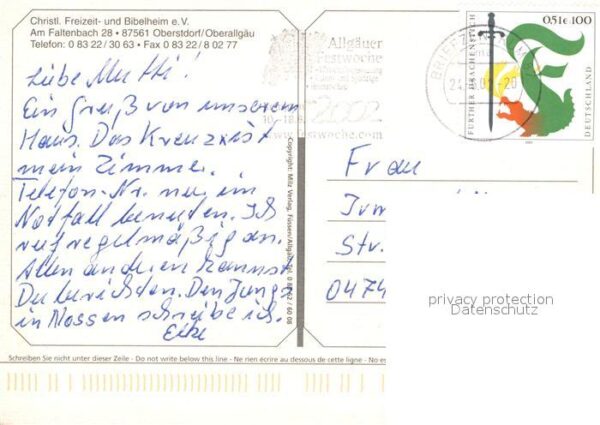 Christl. Freizeit- und Bibelheim e.V.
Am Faltenbach 28 • 87561 Oberstdorf/Oberallgäu
Telefon: 0 83 22/ 30 63 • Fax 0 83 22/ 8 02 77
Liebe Mutti!
Ein Gruß von unserem
Haus. Das Kreuz ist
mein Zimmer.
Telefon-Nr. nur im
Notfall benutzen. Ich
ruf regelmäßig an.
Allen anderen kannst
Du berichten. Den Jungs
in Nossen schreibe ich.
Allgäuer
Festwoche
2002
www.festwoche.com
BRIEFZENTRUM
0,51€ 100
FURTHER DRACHENSTICH
DEUTSCHLAND
Copyright: Milz Verlag, Füssen/Allgäu, Tel. 0 83 62 / 60 08
Frau
Irm
Str.
0474
privacy protection
Datenschutz
Schreiben Sie nicht unter dieser Zeile - Do not write below this line - Ne rien écrire au dessous de cette ligne - No es